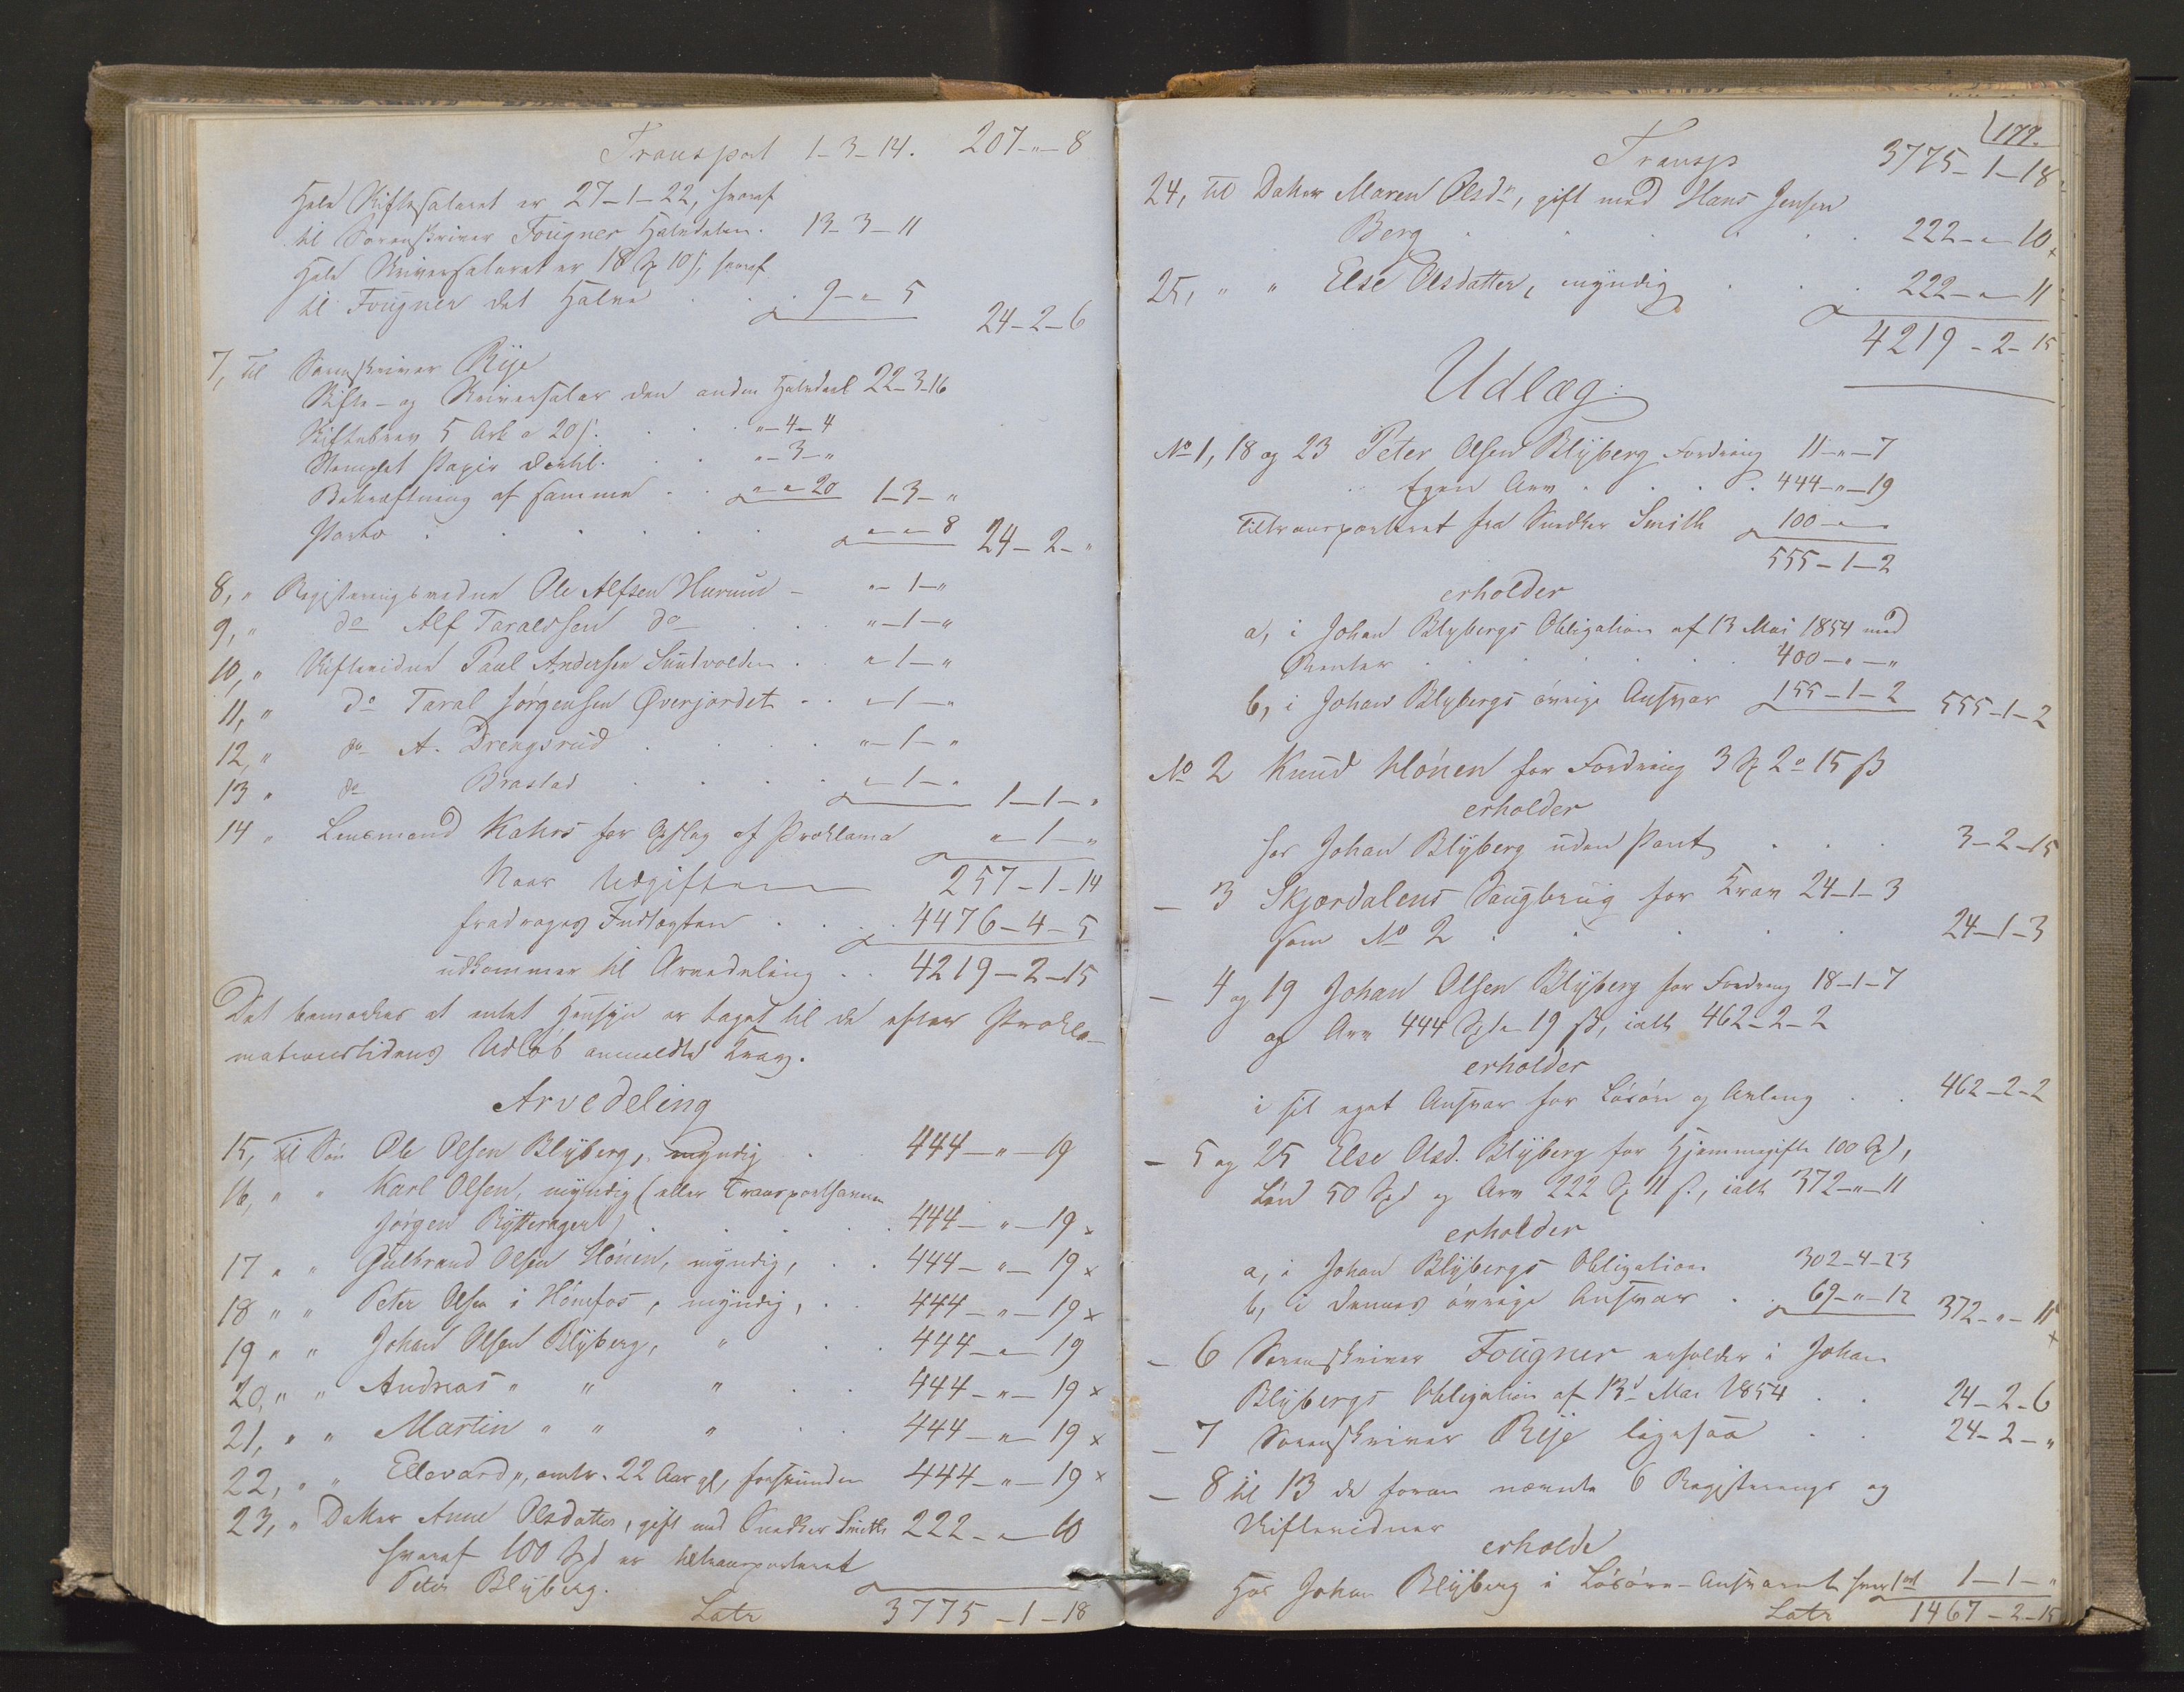 Transport 1-3-14. 207-"-8
Hele Skiftesalaret er 27-1-22, hvoraf
til Sorenskriver Fougner Halvdelen. 13-3-11
Hele Skriversalaret er 18 Sp 10 s, hvoraf
til Fougner det Halve . . 9-"-5
24-2-6
7, til Sorenskriver Rije
Skifte- og Skriversalar den anden Halvdeel 22-3-16
Skiftebrev 5 Ark a 20 s. . . "-4-4
Stemplet Papir . . "-3-"
Bekræftning af samme . . "-"-20 1-3-"
Porto . . . . . "-"-8 24-2-"
8, " Registeringsvidne Ole Alfsen Hurum - "-1-"
9, " do Alf Taraldsen do . . "-1-"
10, " Skiftevidne Paul Andersen Sundvolden . "-1-"
11, " do Taral Jørgensen Øverjordet . . "-1-"
12, " do A. Drengsrud . . . . "-1-"
13 " do Brastad . . . . "-1-" 1-1-"
14 " Lensmand Kahrs for Opslag af Proklama "-1-"
Naar Udgiften 257-1-14
fradrages Indtægten . . . 4476-4-5
udkommer til Arvedeling . . 4219-2-15
Det bemærkes at intet Hensyn er taget til de efter Prokla-
mationstidens Udløb anmeldte Krav.
Arvedeling
15, til Søn Ole Olsen Blyberg, myndig . 444-"-19
16, " " Karl Olsen, myndig (eller Transporthaveren
Jørgen Rytterager) . . . . 444-"-19 x
17 " " Gulbrand Olsen Hønen, myndig, . . 444-"-19 x
18 " " Peter Olsen i Hønefos, myndig, . 444-"-19 x
19 " " Johan Olsen Blyberg, " . . 444-"-19
20, " " Andreas " " " . . 444-"-19 x
21, " " Martin " " " . . 444-"-19 x
22, " " Ellevard ", omtr. 22 Aar gl, 444-"-19 x
23, " Datter Anne Olsdatter, gift med Snedker Smith 222-"-10
hvoraf 100 Spd er tiltransporteret
Peter Blyberg.
Latr 3775-1-18
177.
Transp 3775-1-18
24, til Datter Maren Olsdr, gift med Hans Jensen
Berg . . . . . . 222-"-10 x
25, " " Else Olsdatter, myndig . . . 222-"-11
4219-2-15
Udlæg:
No 1, 18 og 23 Peter Olsen Blyberg Fordring 11-"-7
Egen Arv . . . . 444-"-19
Tiltransporteret fra Snedker Smith 100-"-"
555-1-2
erholder
a, i Johan Blybergs Obligation af 13 Mai 1854 med
Renter . . . . . 400-"-"
b, i Johan Blybergs øvrige Ansvar 155-1-2 555-1-2
No 2 Knud Hönen for Fordring 3 Sp 2 o 15 ß
erholder
hos Johan Blyberg uden Pant . . . 3-2-15
- 3 Skjærdalens Saugbrug for Krav 24-1-3
som No 2 . . . . . 24-1-3
- 4 og 19 Johan Olsen Blyberg for Fordring 18-1-7
og Arv 444 Spd 19 ß, ialt 462-2-2
erholder
i sit eget Ansvar for Løsøre og Avling . . 462-2-2
- 5 og 25 Else Olsd. Blyberg for Hjemmegifte 100 Sp,
Løn 50 Spd og Arv 222 Sp 11 s., ialt 372-"-11
erholder
a, i Johan Blybergs Obligation 302-4-23
b, i dennes øvrige Ansvar . . 69-"-12 372-"-11 x
- 6 Sorenskriver Fougner erholder i Johan
Blybergs Obligation af 13d Mai 1854 . . 24-2-6
- 7 Sorenskriver Rije ligesaa . . 24-2-"
- 8 til 13 de foran nævnte 6 Registerings og
Skiftevidner
erholde
hos Johan Blyberg i Løsøre-Ansvaret hver 1 ort 1-1-"
Latr 1467-2-15